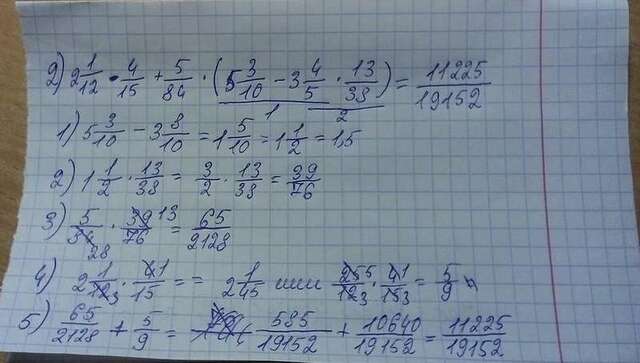 2) 2 1/12 · 4/15 + 5/84 · (5 3/10 - 3 4/5 · 13/38) = 11225/19152
1 2
1) 5 3/10 - 3 8/10 = 1 5/10 = 1 1/2 = 1,5
2) 1 1/2 · 13/38 = 3/2 · 13/38 = 39/76
3) 5/84 28 · 39 13/76 = 65/2128
4) 2 1/12 3 · 4 1/15 = = 2 1/45 или 25 5/12 3 · 4 1/15 3 = 5/9
5) 65/2128 + 5/9 = 585/19152 + 10640/19152 = 11225/19152